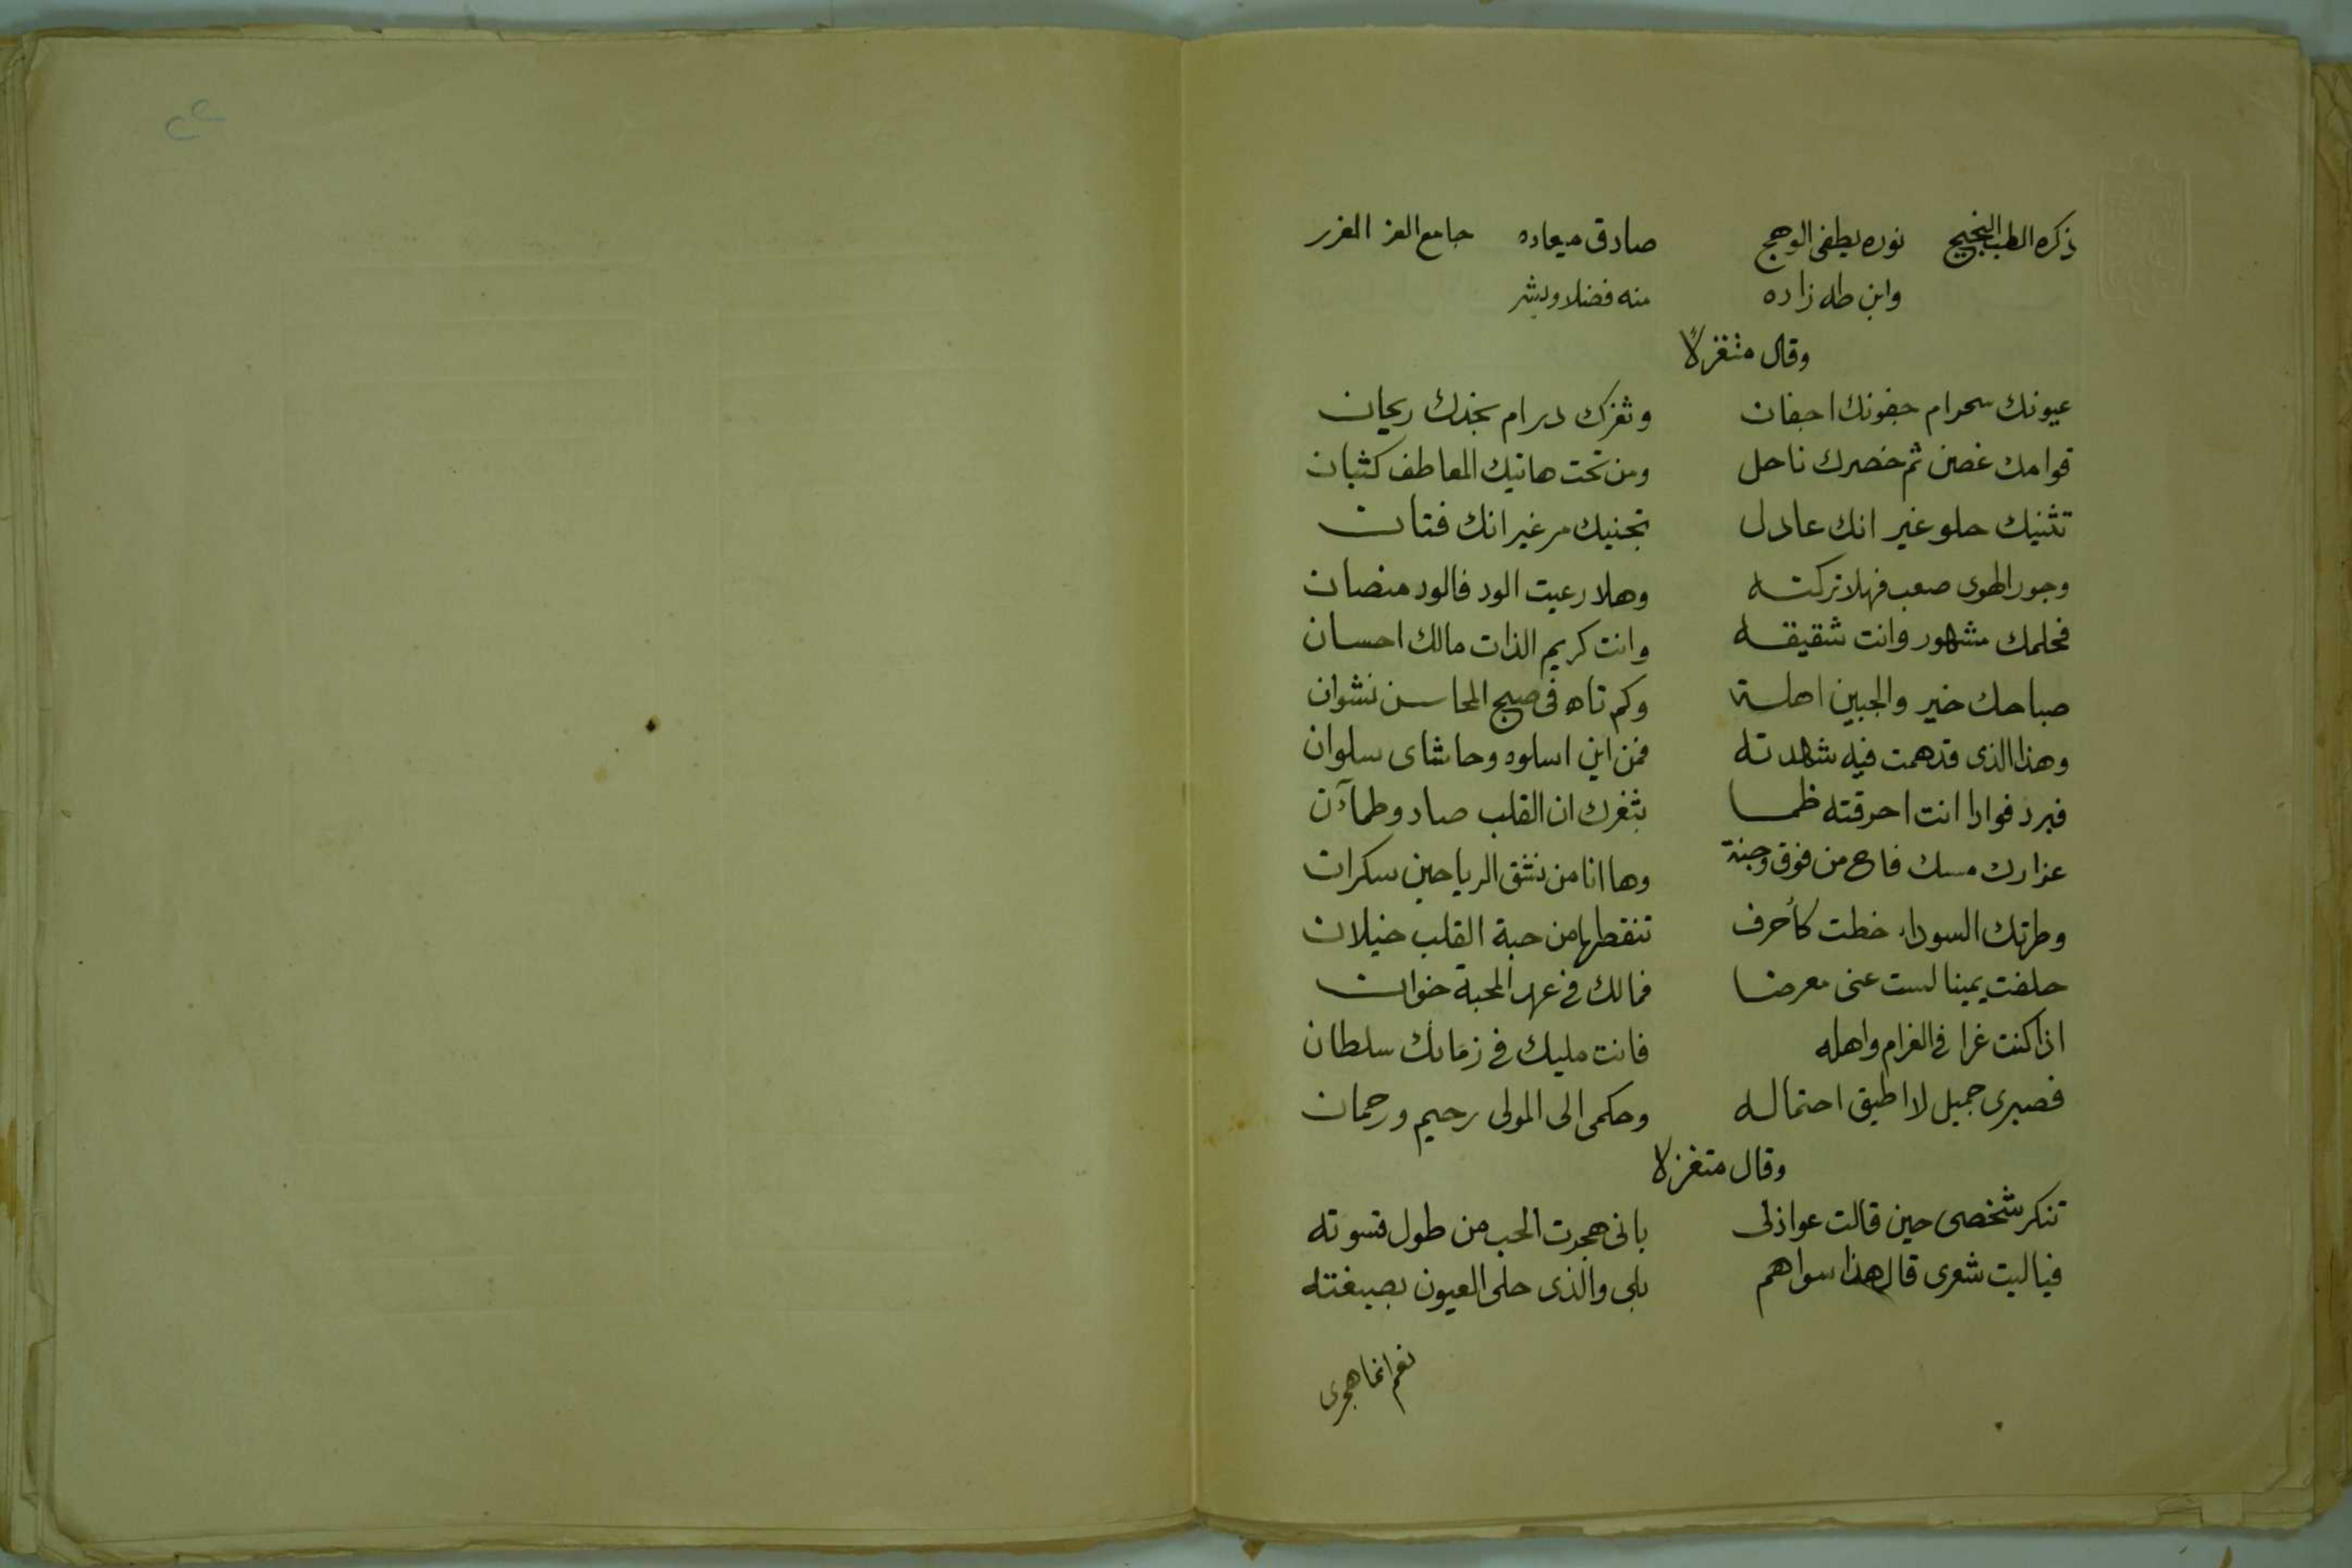 ذكره الطب النجيح نوره يطفى الوهج صادق ميعاده جامع العز الغزر
وابن طه زاده منه فضلا وبشر
وقال متغزلاً
عيونك سحر ام جفونك اجفان وثغرك در ام بخدك ريحان
قوامك غصن ثم خصرك ناحل ومن تحت هاتيك المعاطف كثبان
تثنيك حلو غير انك عادل تجنيك مر غير انك فتان
وجور الهوى صعب فهلا تركته وهلا رعيت الود فالود منصان
فحلمك مشهور وانت شقيقه وانت كريم الذات مالك احسان
صباحك خير والجبين اهلة وكم تاه فى صبح المحاسن نشوان
وهذا الذى قد همت فيه شهدته فمن اين اسلوه وحاشاى سلوان
فبرد فوادا انت احرقته ظما بثغرك ان القلب صاد وظمآن
عذارك مسك فاح من فوق وجنة وها انا من نشق الرياحين سكران
وطرتك السوداء خطت كأحرف تنقطها من حبة القلب خيلان
حلفت يمينا لست عنى معرضا فمالك فى عهد المحبة خوان
اذا كنت غرا فى الغرام واهله فانت مليك فى زمانك سلطان
فصبرى جميل لا اطيق احتماله وحكمى الى المولى رحيم ورحمان
وقال متغزلا
تنكر شخصى حين قالت عواذلى بانى هجرت الحب من طول قسوته
فياليت شعرى قال هذا سواهم بلى والذى حلى العيون بصبغته
نعم انما هجرى
٢٢